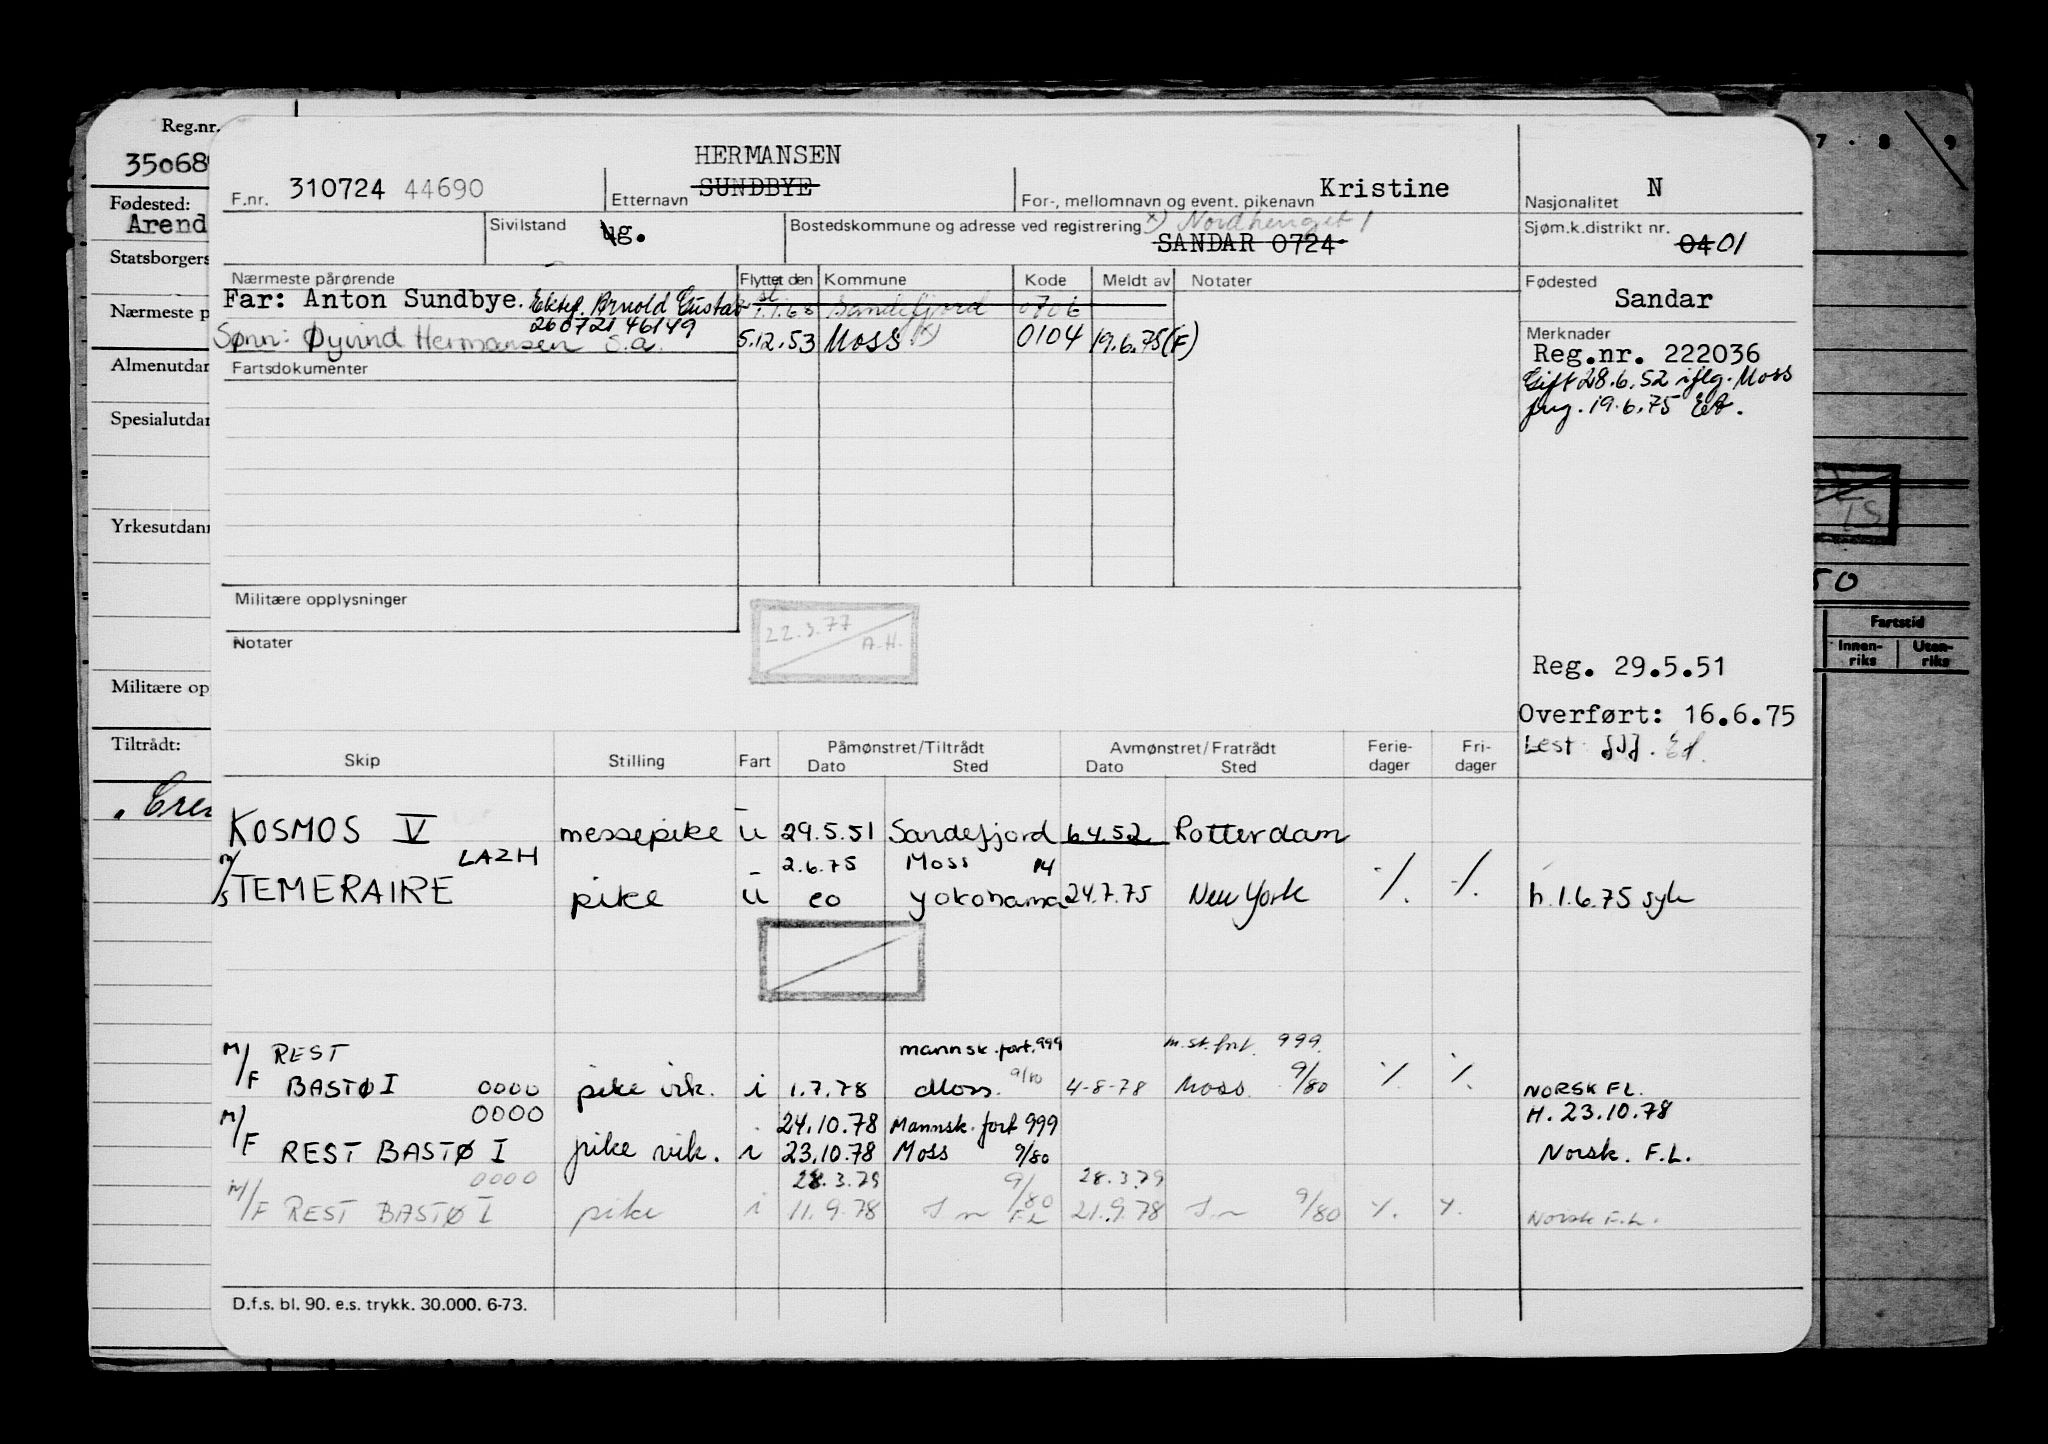 Reg.nr.
35068
Fødested:
Arend
Statsborgers
Nærmeste p
Almenutdan
Spesialutdan
Yrkesutdann
Militære op
Tiltrådt:
7 . 8 9
50
Fartstid
Innen-
riks
Uten-
riks
HERMANSEN
F.nr. 310724 44690
Etternavn SUNDBYE
For-, mellomnavn og event. pikenavn Kristine
Nasjonalitet N
Sivilstand ug.
Bostedskommune og adresse ved registrering x)
SANDAR 0724
Sjøm.k.distrikt nr. 04 01
Nærmeste pårørende
Far: Anton Sundbye. Ektef. Arnold Gustav
260721 46149
Sønn: Øyvind Hermansen s.a.
Flyttet den Kommune Kode Meldt av Notater
1.1.68 Sandefjord 0706
5.12.53 Moss x) 0104 19.6.75(F)
Fødested
Sandar
Merknader
Reg.nr. 222036
Gift 28.6.52 iflg. Moss
19.6.75
Fartsdokumenter
Militære opplysninger
Notater
22.3.77
A.H.
Reg. 29.5.51
Overført: 16.6.75
Lest:
Skip Stilling Fart Påmønstret/Tiltrådt Dato Sted Avmønstret/Fratrådt Dato Sted Ferie-dager Fri-dager
KOSMOS V messepike u 29.5.51 Sandefjord 6.4.52 Rotterdam
LAZH 2.6.75 Moss 14
M/S TEMERAIRE pike u eo Yokohama 24.7.75 New York ·/. ·/. h.1.6.75 syk
M/F REST mannsk.fort.999 m.st.fort. 999.
BASTØ I 0000 pike vik. i 1.7.78 Moss. 9/80 4-8-78 Moss. 9/80 ·/. ·/. NORSK FL.
0000 24.10.78 Mannsk. fort 999 H. 23.10.78
M/F REST BASTØ I pike vik. i 23.10.78 Moss 9/80 Norsk. F.L.
0000 28.3.79 9/80 28.3.79
M/F REST BASTØ I pike i 11.9.78 FL 21.9.78 9/80 ·/. ·/. Norsk F.L.
D.f.s. bl. 90. e.s. trykk. 30.000. 6-73.